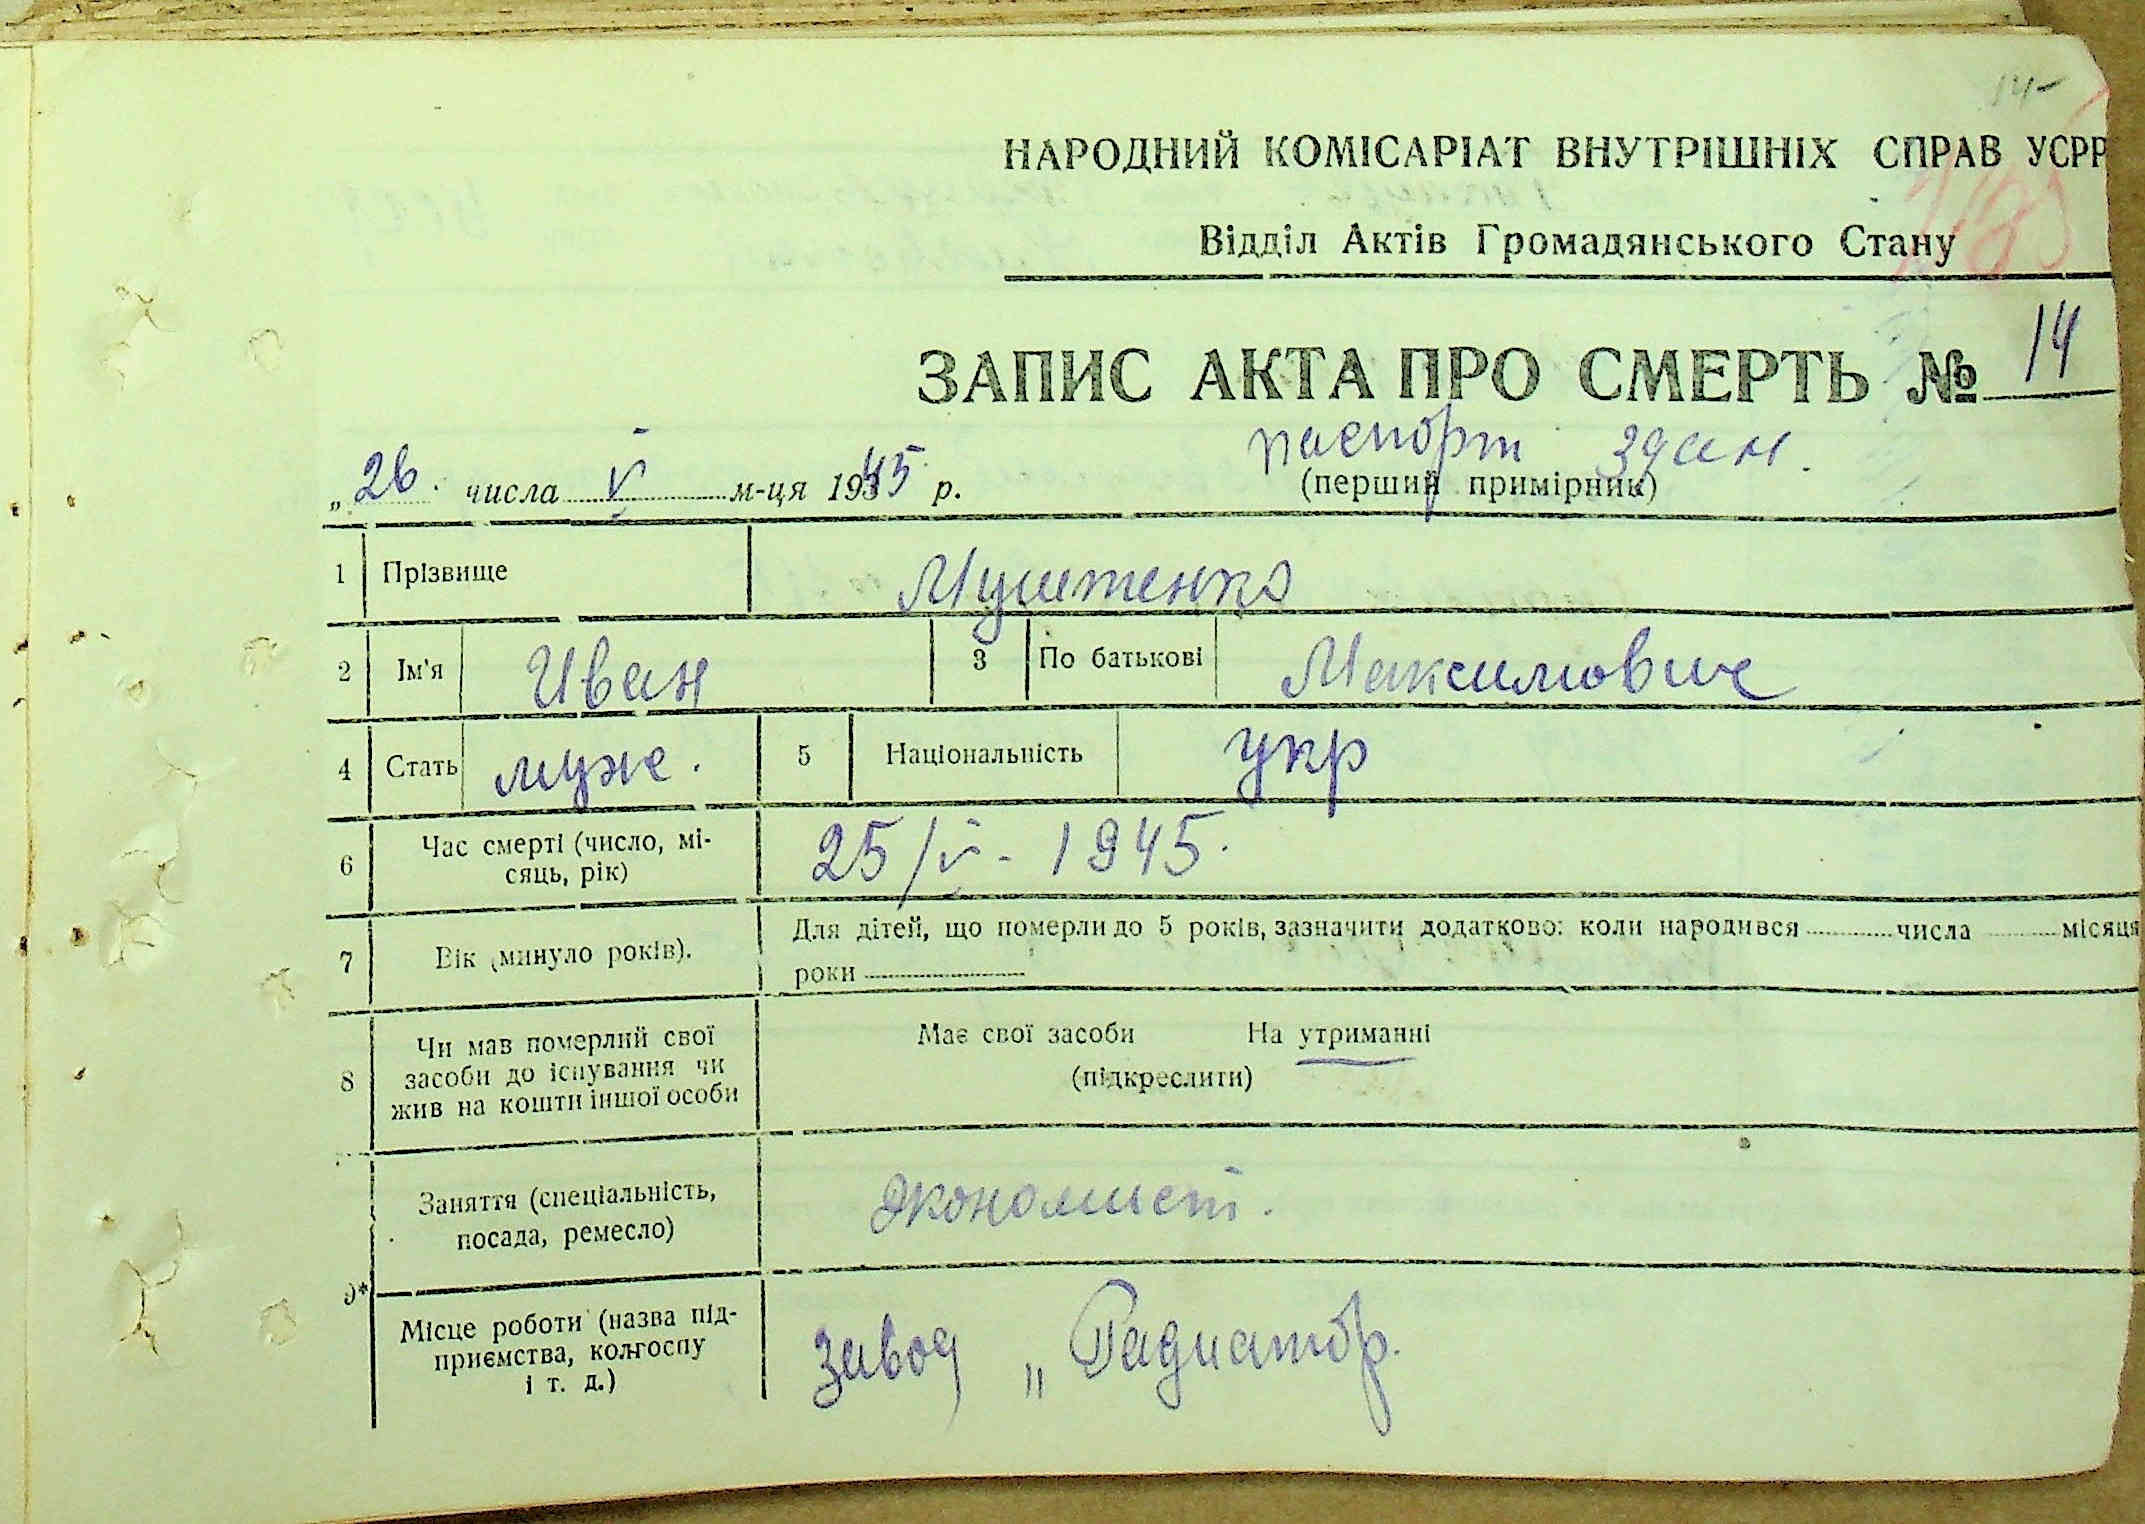 14
НАРОДНИЙ КОМІСАРІАТ ВНУТРІШНІХ СПРАВ УСРР
Відділ Актів Громадянського Стану
ЗАПИС АКТА ПРО СМЕРТЬ № 14
паспорт здан.
„26. числа V м-ця 1945 р. (перший примірник)
1 Прізвище Муштенко
2 Ім'я Иван 3 По батькові Максимович
4 Стать муже. 5 Національність укр
6 Час смерті (число, мі-
сяць, рік) 25/V - 1945.
7 Вік (минуло років). Для дітей, що померли до 5 років, зазначити додатково: коли народився числа місяця
роки
8 Чи мав померлий свої
засоби до існування чи
жив на кошти іншої особи
Має свої засоби На утриманні
(підкреслити)
Заняття (спеціальність,
посада, ремесло) Экономист.
9*
Місце роботи (назва під-
приємства, колгоспу
і т. д.) завод „Радиатор.